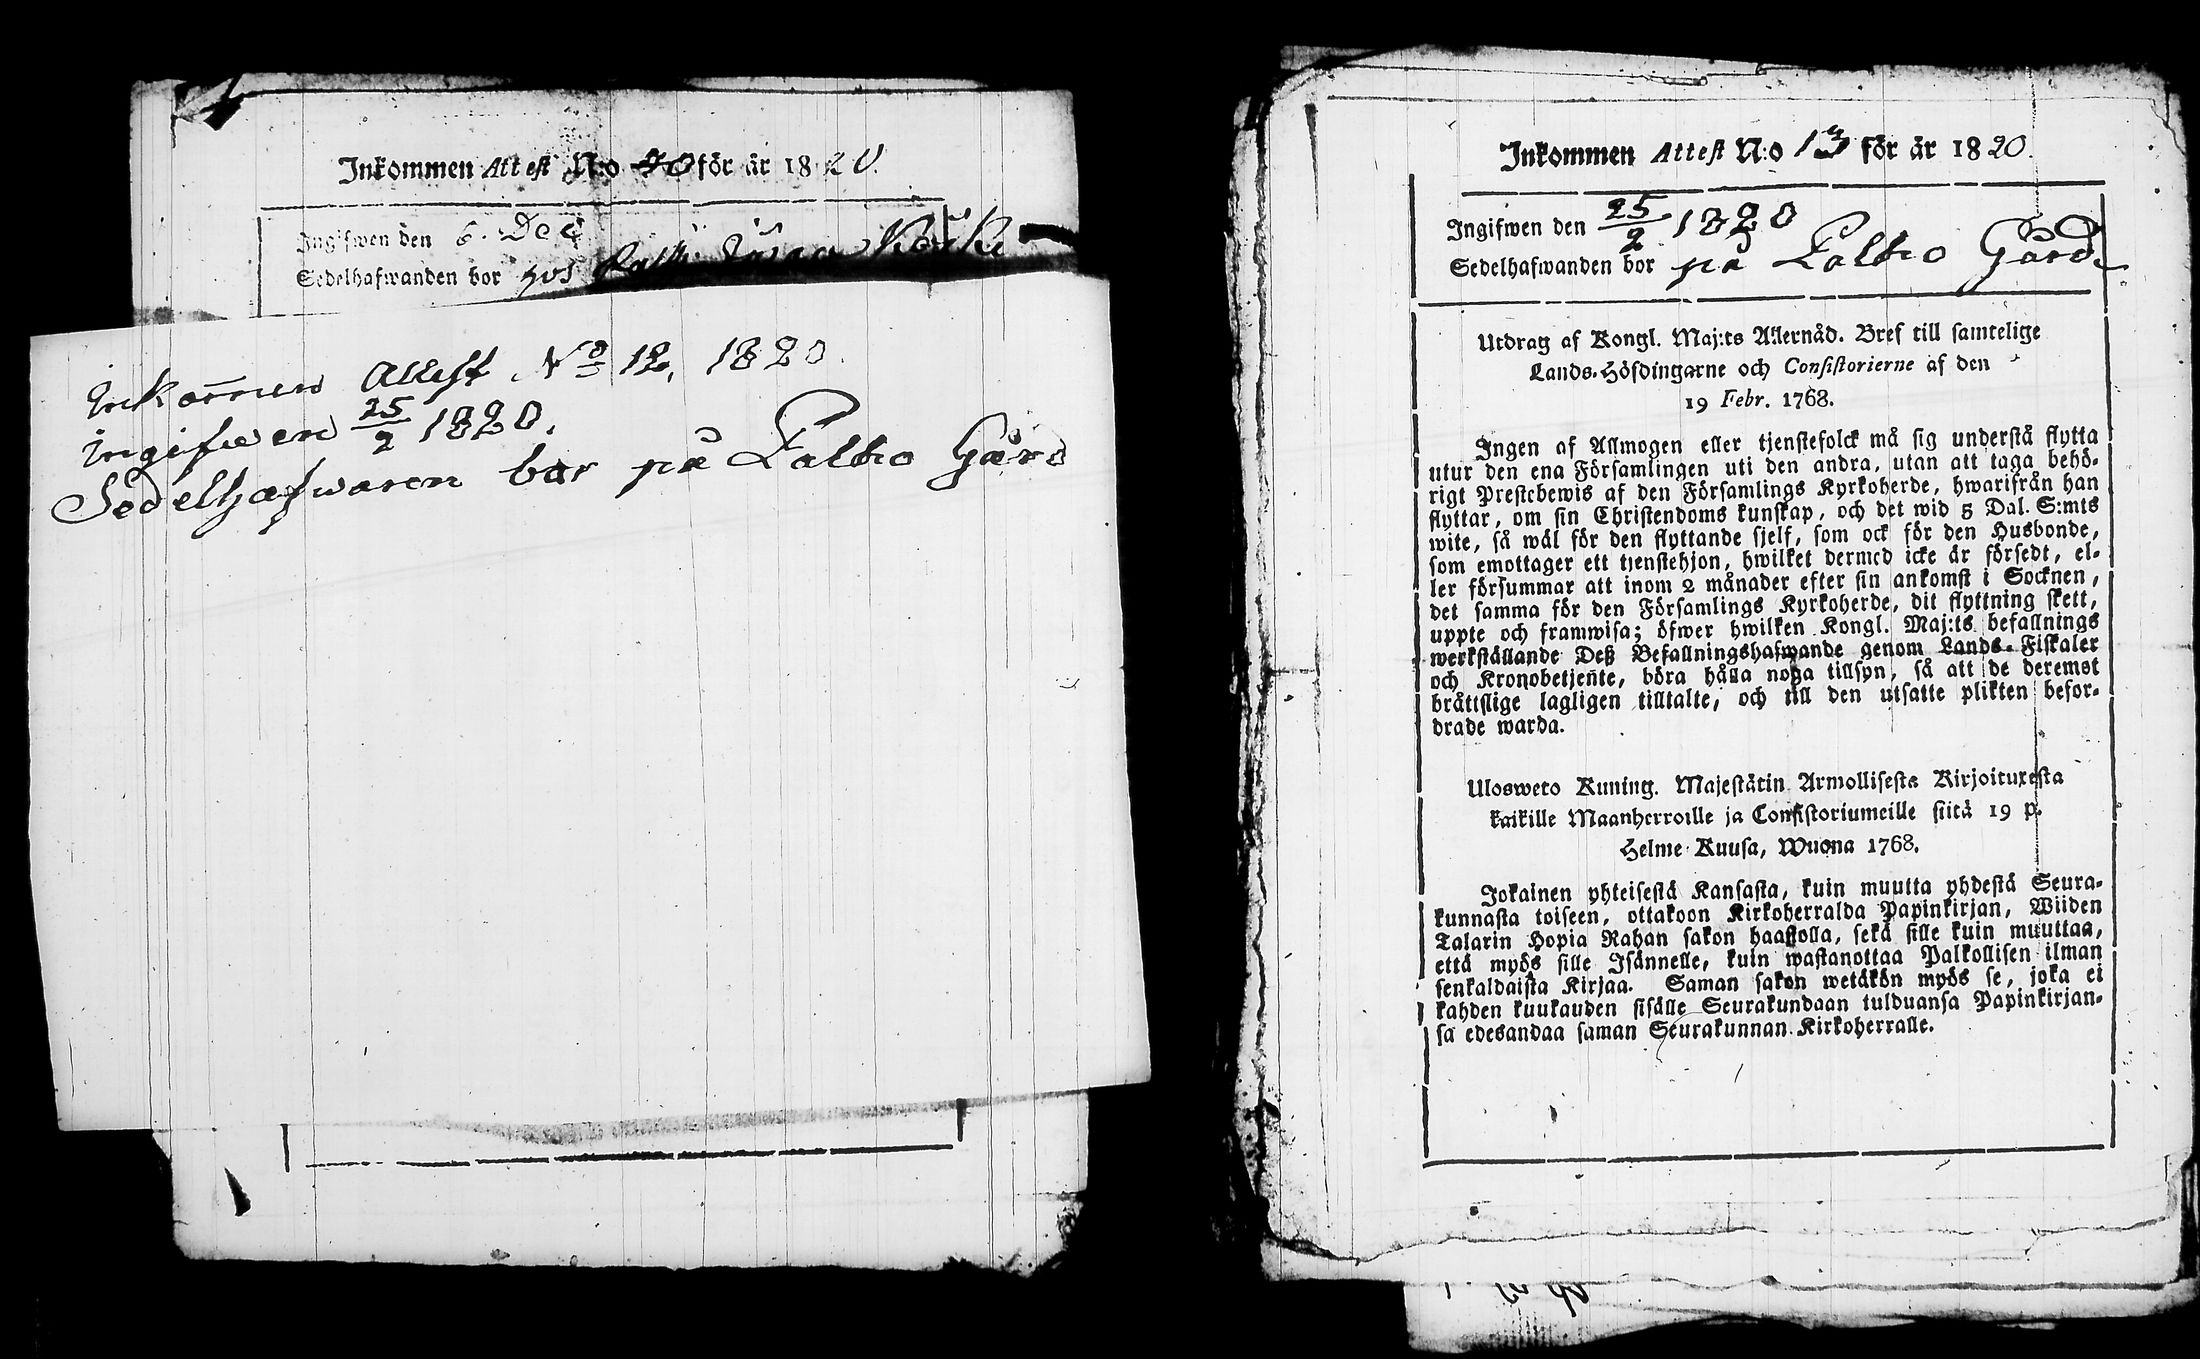 Inkommen Attest N:o 40 för år 1820.
Ingifwen den 6. Dec
Sedelhafwanden bor hos
Inkom̅en Attest No 12, 1820
ingifwen 25/2 1820.
Sedelhafwaren bor på Laltio Gård
Inkommen Attest N:o 13 för år 1820.
Ingifwen den 25/2 1820
Sedelhafwanden bor på Laltio Gård
Utdrag af Kongl. Maj:ts Allernåd. Bref till samtelige
Lands-Höfdingarne och Consistorierne af den
19 Febr. 1768.
Ingen af Allmogen eller tjenstefolck må sig understå flytta
utur den ena Församlingen uti den andra, utan att taga behö-
rigt Prestebewis af den Församlings Kyrkoherde, hwarifrån han
flyttar, om sin Christendoms kunskap, och det wid 5 Dal. S:mts
wite, så wäl för den flyttande sjelf, som ock för den Husbonde,
som emottager ett tjenstehjon, hwilket dermed icke är försedt, el-
ler försummar att inom 2 månader efter sin ankomst i Socknen,
det samma för den Församlings Kyrkoherde, dit flyttning skett,
uppte och framwisa; öfwer hwilken Kongl. Maj:ts befallnings
werkställande Deß Befallningshafwande genom Lands-Fiskaler
och Kronobetjente, böra hålla noga tillsyn, så att de deremot
bråttslige lagligen tilltalte, och till den utsatte plikten befor-
drade warda.
Ulosweto Kuning. Majestätin Armollisesta Kirjoituxesta
kaikille Maanherroille ja Consistoriumeille siitä 19 p.
Helme Kuusa, Wuona 1768.
Jokainen yhteisestä Kansasta, kuin muutta yhdestä Seura-
kunnasta toiseen, ottakoon Kirkoherralda Papinkirjan, Wiiden
Talarin Hopia Rahan sakon haastolla, sekä sille kuin muuttaa,
että myös sille Isännelle, kuin wastanottaa Palkollisen ilman
senkaldaista Kirjaa. Saman sakon wetäkön myös se, joka ei
kahden kuukauden sisälle Seurakundaan tulduansa Papinkirjan-
sa edesandaa saman Seurakunnan Kirkoherralle.